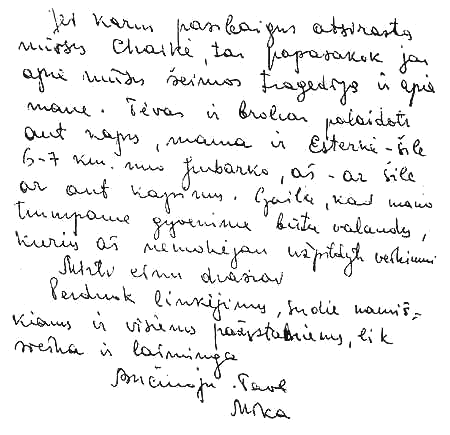 Jei karui pasibaigus atsirastų
mūsų Chaikė, tai papasakok jai
apie mūsų šeimos tragediją ir apie
mane. Tėvas ir broliai palaidoti
ant kapų, mama ir Esterkė - šile
6-7 km. nuo Jurbarko, aš - ar šile
ar ant kapinių. Gaila, kad mano
trumpame gyvenime būta valandų,
kurių aš nemokėjau užpildyti veikimu
Mirti einu drąsiai
Perduok linkėjimus, sudie namiš-
kiams ir visiems pažįstamiems, lik
sveika ir laiminga
Bučiuoju Tave
Mika